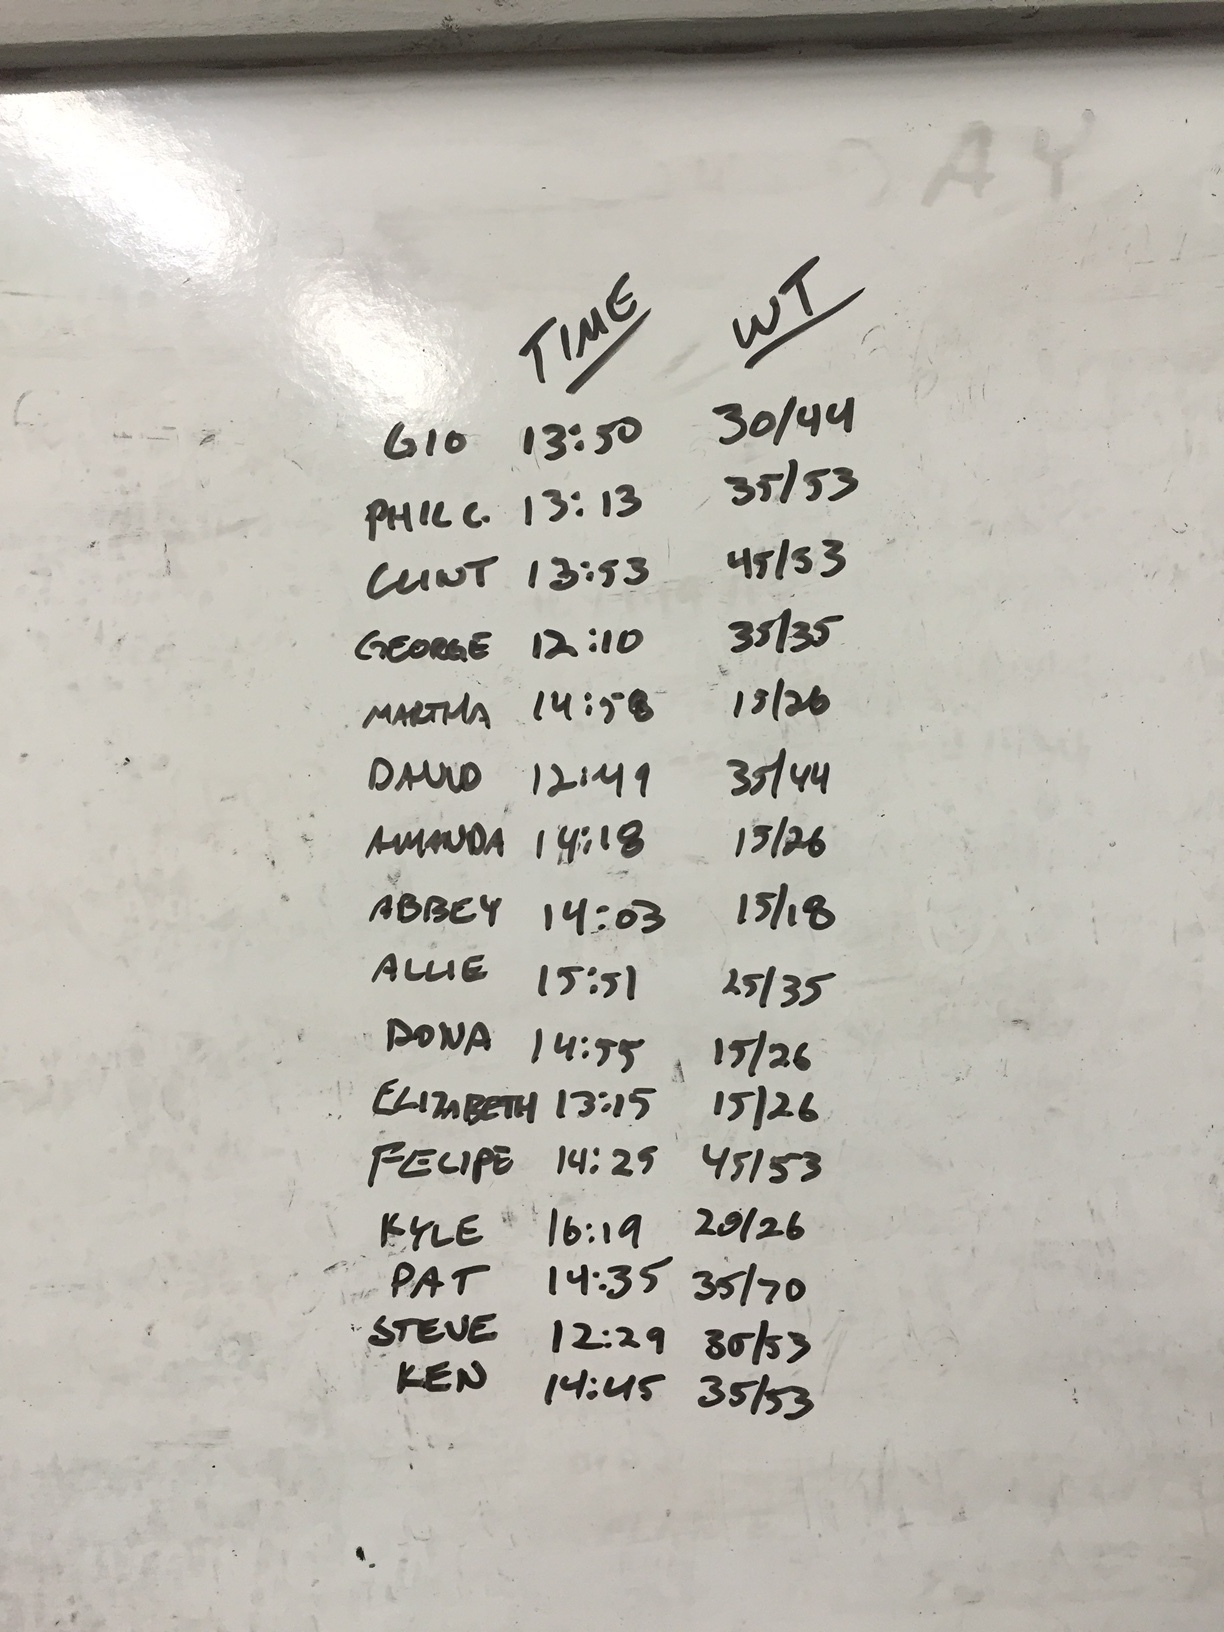 TIME WT
GIO 13:50 30/44
PHIL C. 13:13 35/53
CLINT 13:53 45/53
GEORGE 12:10 35/35
MARTHA 14:58 15/26
DAVID 12:49 35/44
AMANDA 14:18 15/26
ABBEY 14:03 15/18
ALLIE 15:51 25/35
DONA 14:55 15/26
ELIZABETH 13:15 15/26
FELIPE 14:25 45/53
KYLE 16:19 20/26
PAT 14:35 35/70
STEVE 12:29 /53
KEN 14:45 35/53